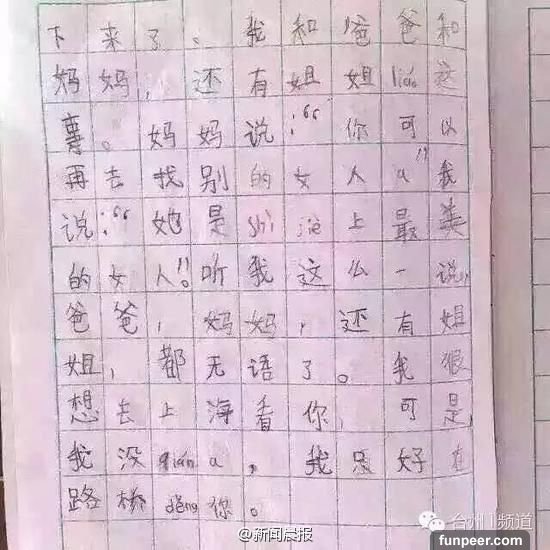 下来了。我和爸爸和
妈妈，还有姐姐lián这
事。妈妈说：“你可以
再去找别的女人a”我
说：“她是shì jiè上最美
的女人”。听我这么一说，
爸爸，妈妈，还有姐
姐，都无语了。我很
想去上海看你，可是，
我没qián a，我只好在
路桥děng你。
@新闻晨报
台州1频道
funpeer.com